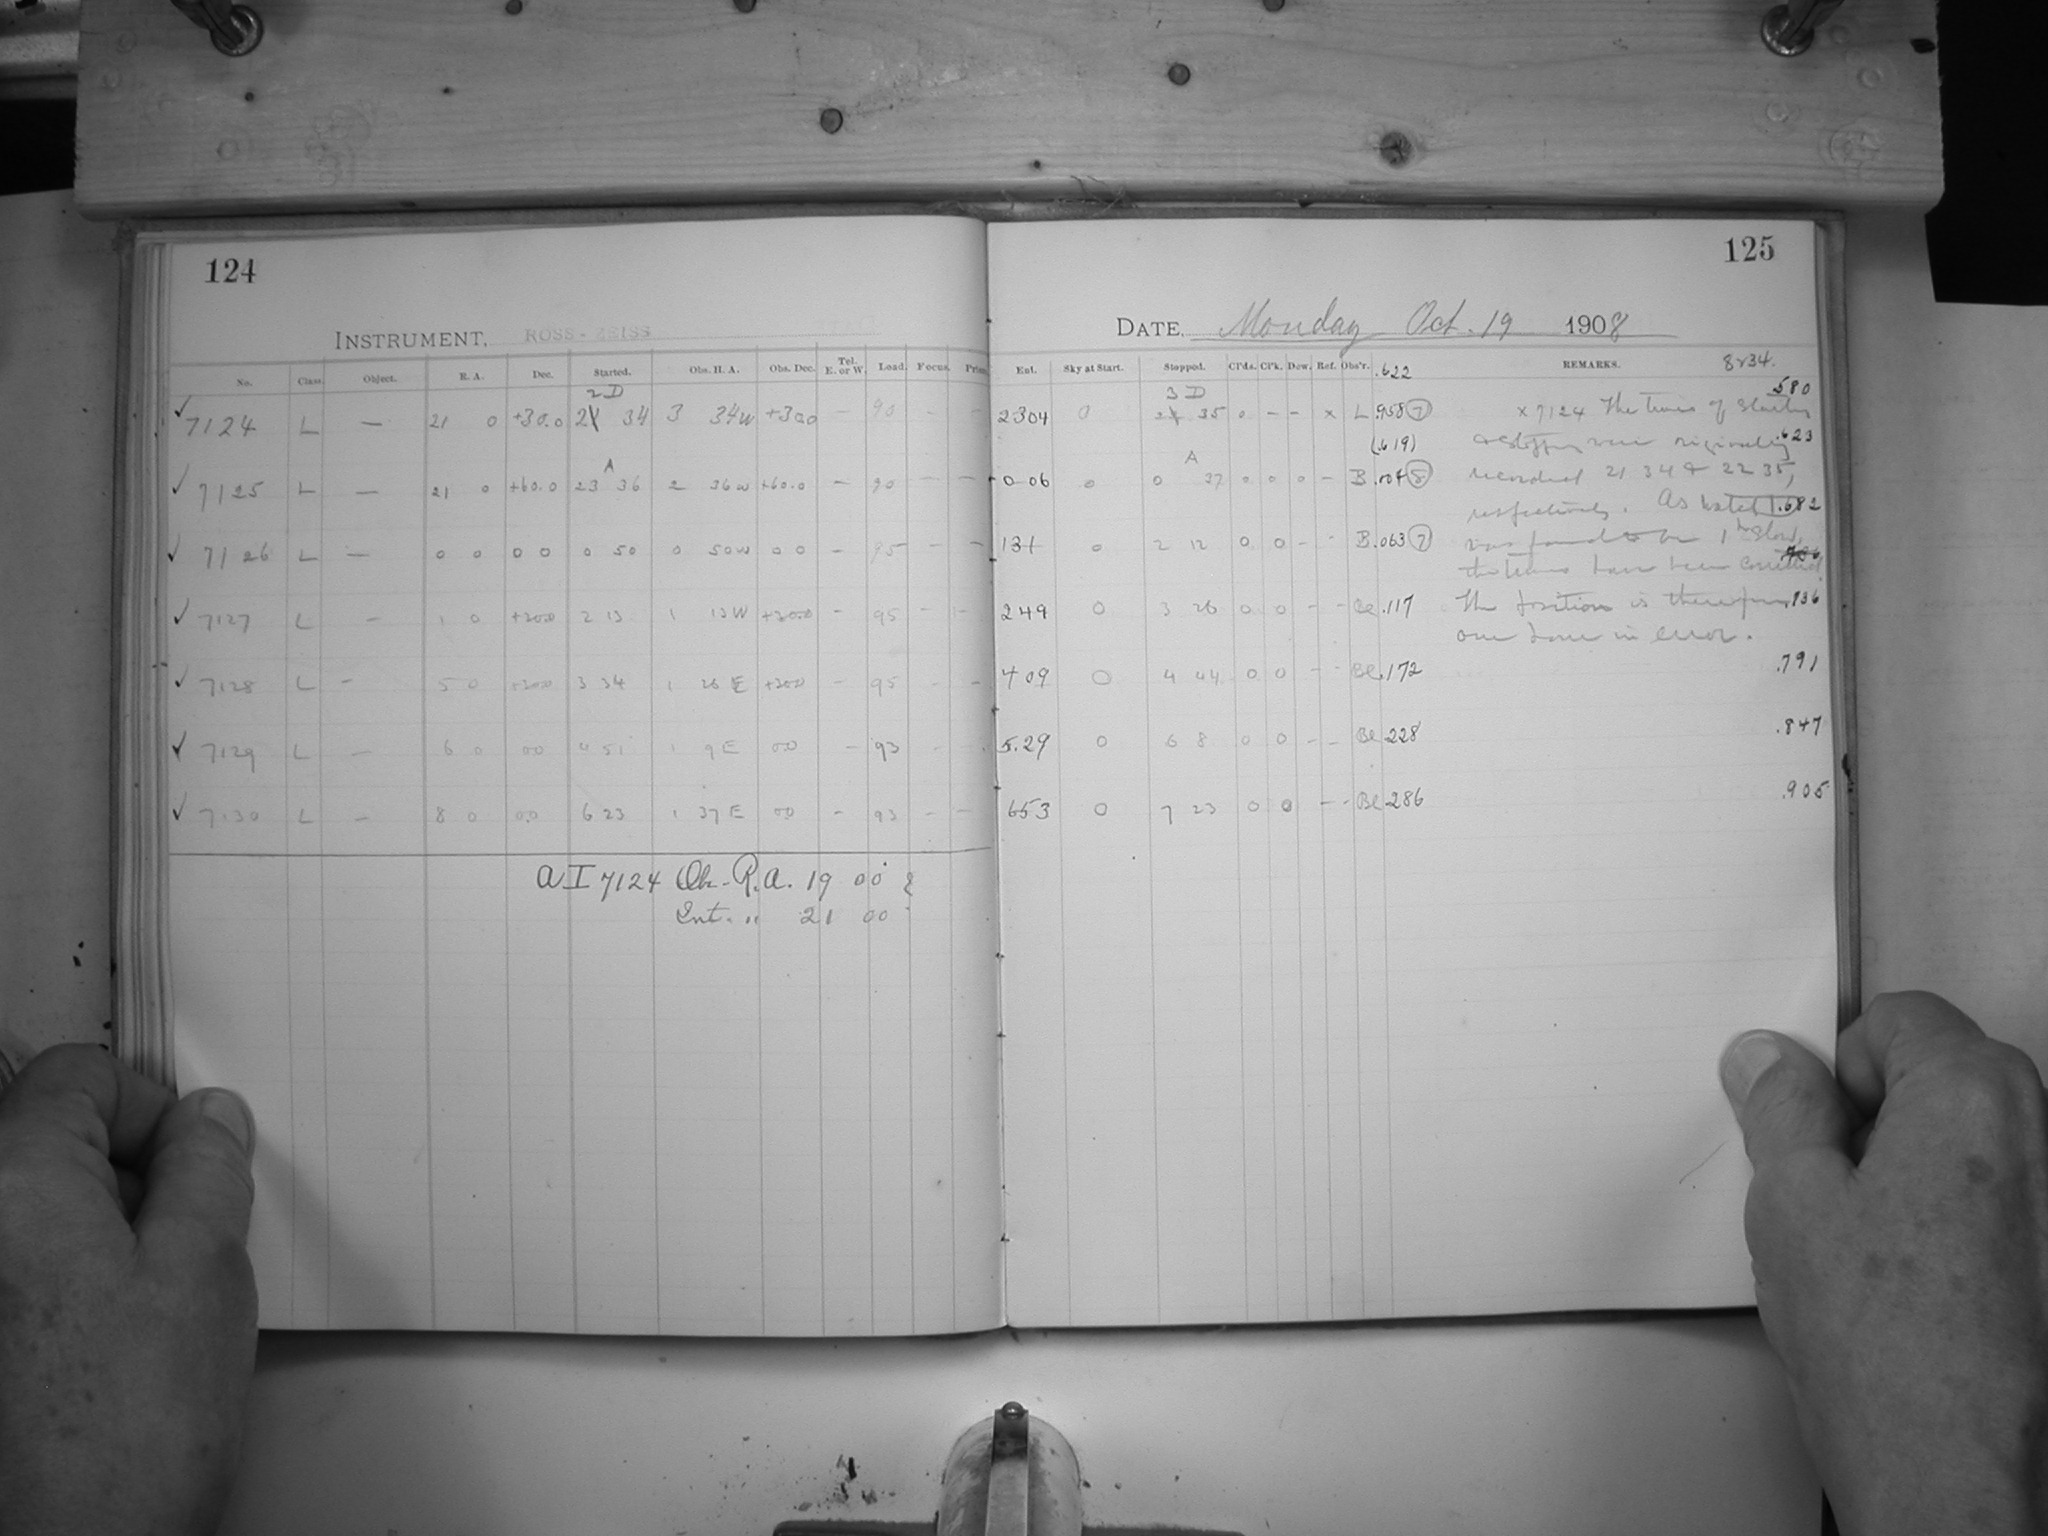 124
INSTRUMENT, ROSS-ZEISS
No. Class. Object. R. A. Dec. Started. Obs. H. A. Obs. Dec. Tel. E. or W. Load. Focus.
2 D
✓ 7124 L — 21 0 +30.0 34 3 34W +300 — 90 - -
A
✓ 7125 L — 21 0 +60.0 23 36 2 36W +60.0 — 90 - -
✓ 7126 L — 0 0 0 0 0 50 0 50W 0 0 - 95 - -
✓ 7127 L — 1 0 +30.0 2 13 1 13W +30.0 - 95 - -
✓ 7128 L — 5 0 +30.0 3 34 1 26 E +30.0 - 95 - -
✓ 7129 L — 6 0 00 4 51 1 9 E 00 - 93 - -
✓ 7130 L — 8 0 0.0 6 23 1 37 E 00 - 93 - -
AI 7124 Ob. R.A. 19 00
Ent. " 21 00
125
DATE, Monday Oct. 19 1908
Ent. Sky at Start. Stopped. Cl'ds. Cl'k. Dew. Ref. Obs'r. .622 REMARKS. 8234.
3 D .580
2304 0 35 0 - - x L .958 (7) x 7124 The times of starting
(.619) & stopping were originally .623
A
0 06 0 0 37 0 0 0 - B .004 (8) recorded 21 34 & 22 35,
respectively. As watch 1.682
131 0 2 12 0 0 - - B .063 (7) was found to be 1h slow,
the times have been corrected.
249 0 3 26 0 0 - - Bl .117 The position is therefore .736
one hour in error.
409 0 4 44 0 0 - - Bl .172 .791
5.29 0 6 8 0 0 - - Bl 228 .847
653 0 7 23 0 0 - - Bl 286 .905